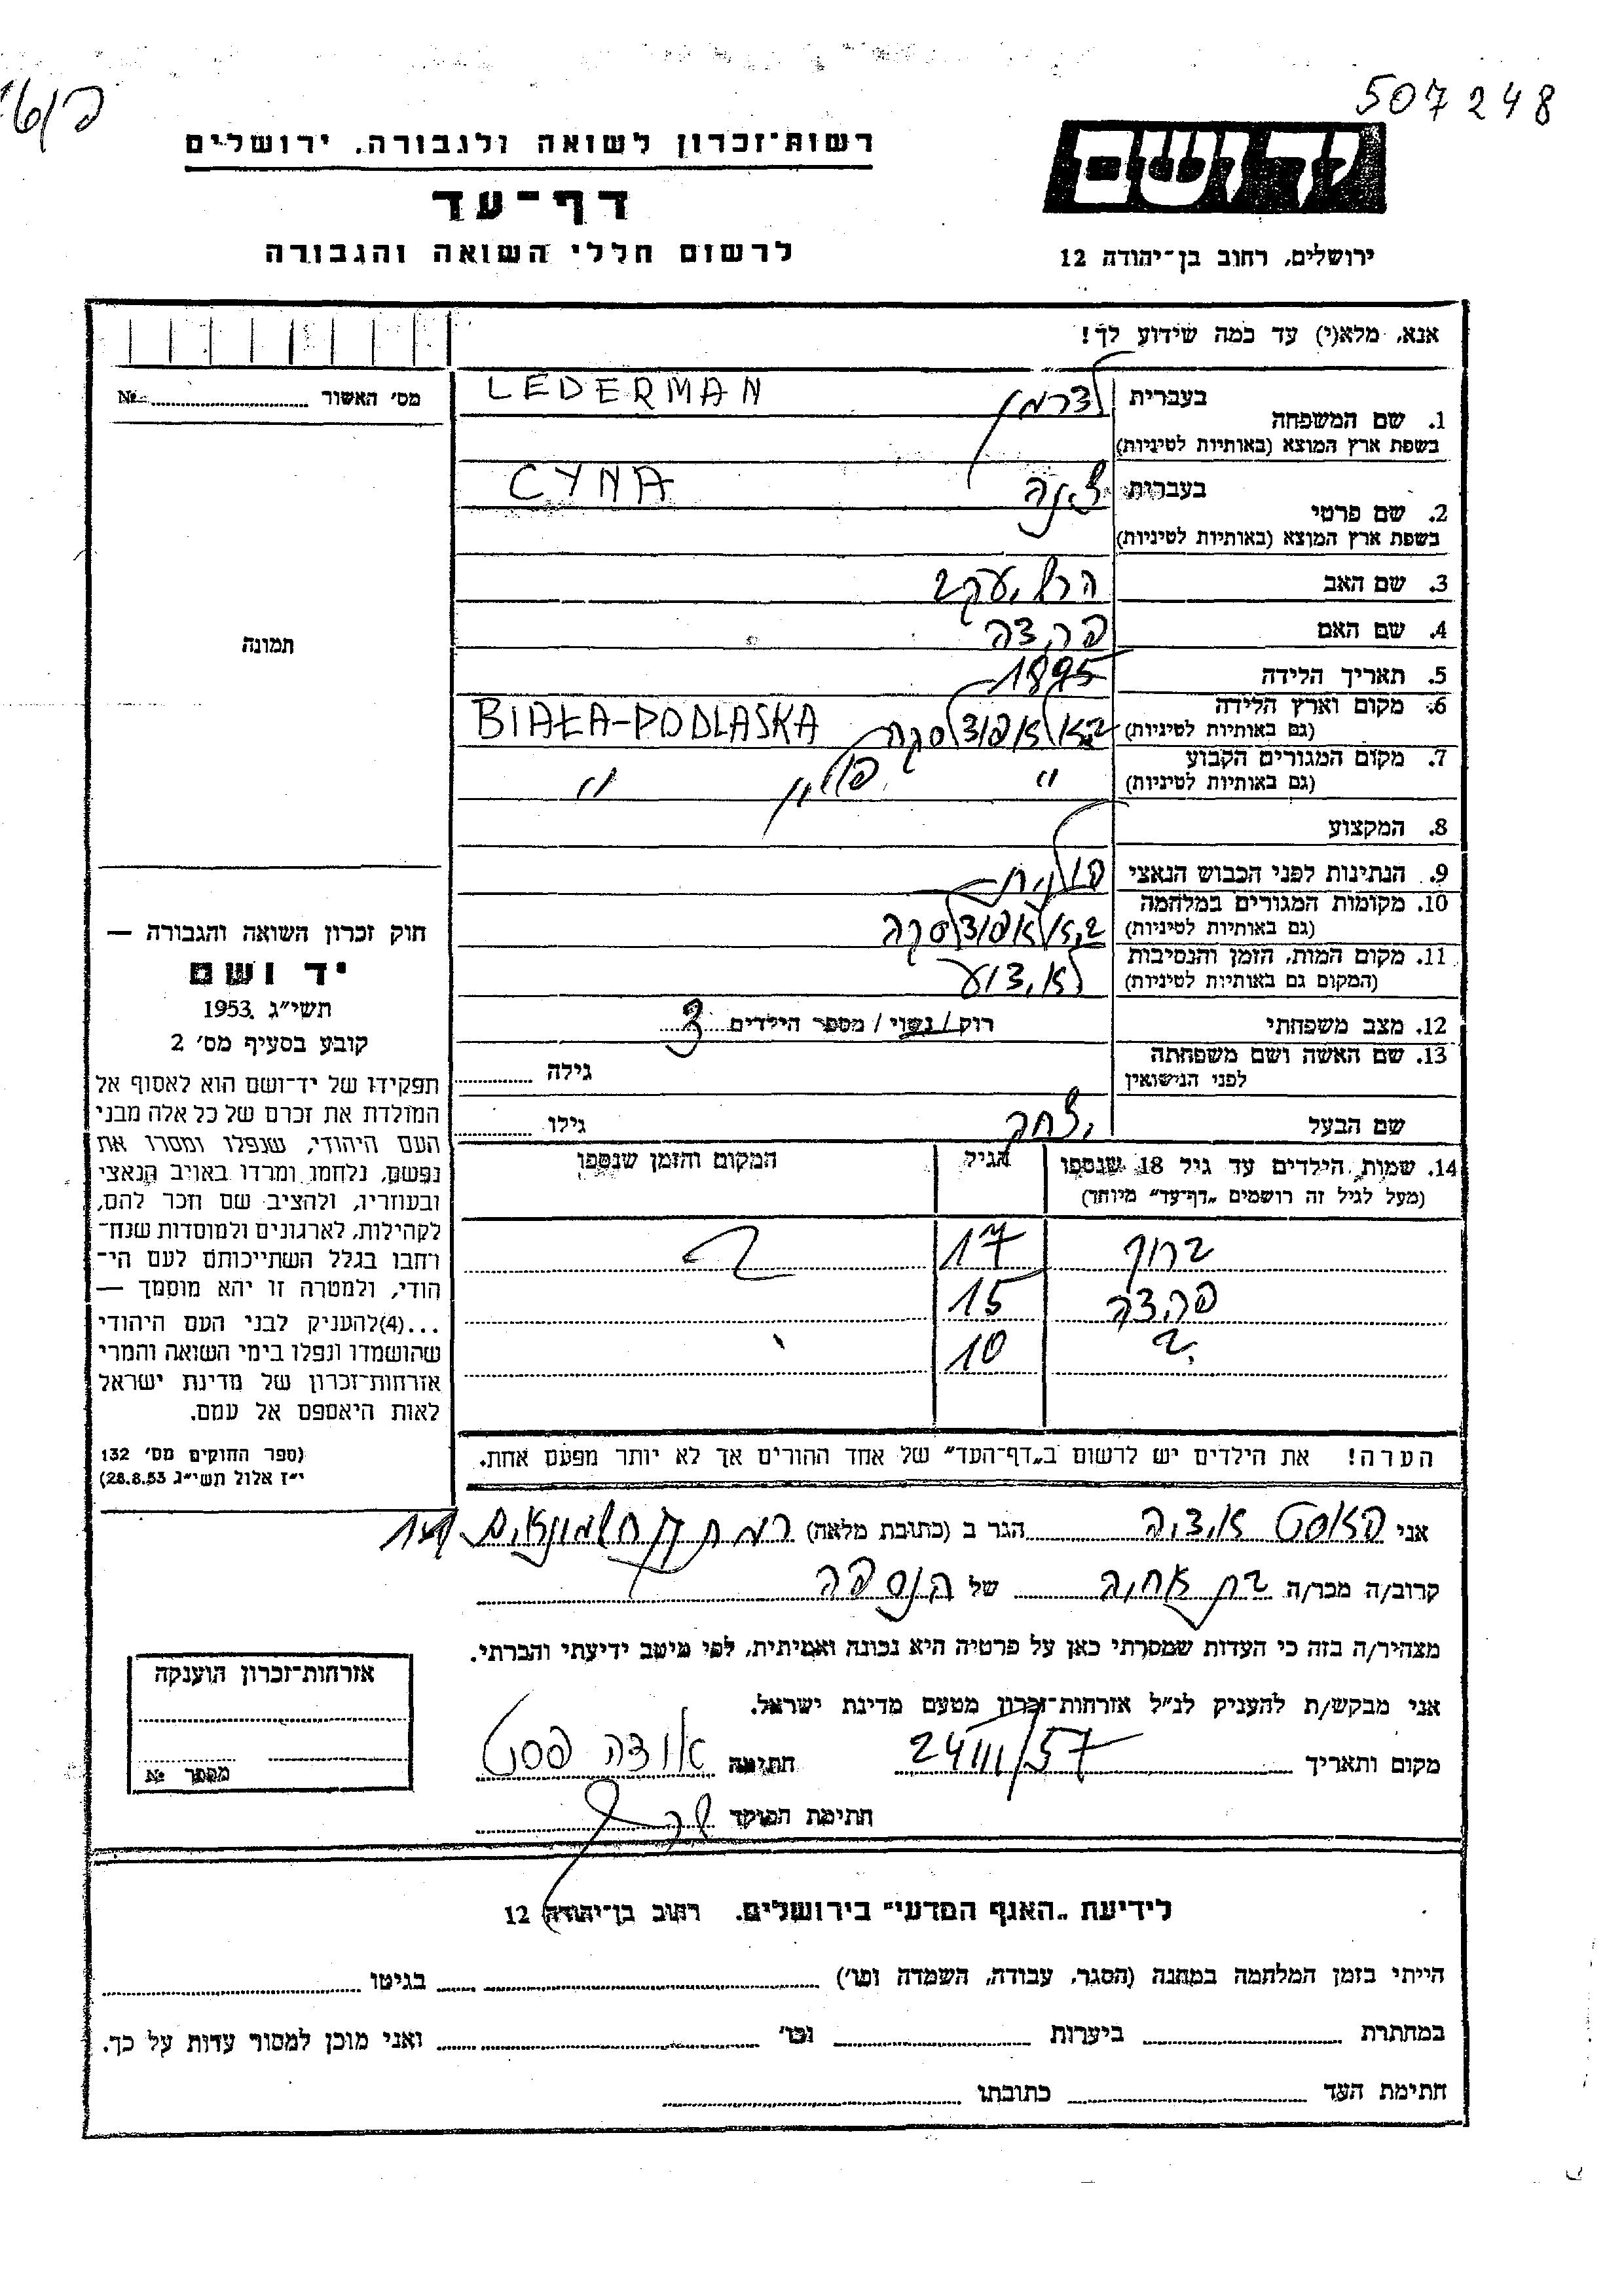 507248
רשות־זכרון לשואה ולגבורה, ירושלים
דף־עד
לרשום חללי השואה והגבורה
יד ושם
ירושלים, רחוב בן־יהודה 12
אנא, מלא(י) עד כמה שידוע לך!
מס' האשור № 
1. שם המשפחה
בעברית לדרמן LEDERMAN
בשפת ארץ המוצא (באותיות לטיניות)
2. שם פרטי
בעברית צינה CYNA
בשפת ארץ המוצא (באותיות לטיניות)
3. שם האב הרש יעקב
4. שם האם
5. תאריך הלידה 1895
6. מקום וארץ הלידה BIAŁA-PODLASKA
(גם באותיות לטיניות)
7. מקום המגורים הקבוע " פולין "
(גם באותיות לטיניות)
8. המקצוע
9. הנתינות לפני הכבוש הנאצי פולנית
10. מקומות המגורים במלחמה
(גם באותיות לטיניות)
11. מקום המות, הזמן והנסיבות לא ידוע
(המקום גם באותיות לטיניות)
12. מצב משפחתי רוק / נשוי / מספר הילדים 3
13. שם האשה ושם משפחתה גילה
לפני הנישואין
שם הבעל יצחק גילו
14. שמות הילדים עד גיל 18 שנספו הגיל המקום והזמן שנספו
(מעל לגיל זה רושמים „דף־עד” מיוחד)
ברוך 17 ?
15
? 10
הערה! את הילדים יש לרשום ב„דף־העד” של אחד ההורים אך לא יותר מפעם אחת.
תמונה
חוק זכרון השואה והגבורה —
יד ושם
תשי״ג 1953
קובע בסעיף מס' 2
תפקידו של יד־ושם הוא לאסוף אל
המולדת את זכרם של כל אלה מבני
העם היהודי, שנפלו ומסרו את
נפשם, נלחמו ומרדו באויב הנאצי
ובעוזריו, ולהציב שם וזכר להם,
לקהילות, לארגונים ולמוסדות שנח־
רחבו בגלל השתייכותם לעם הי־
הודי, ולמטרה זו יהא מוסמך —
...(4) להעניק לבני העם היהודי
שהושמדו ונפלו בימי השואה והמרי
אזרחות־זכרון של מדינת ישראל
לאות היאספם אל עמם.
(ספר החוקים מס' 132
י״ז אלול תשי״ג 28.8.53)
אני הגר ב (כתובת מלאה) רמת גן חשמונאים
קרוב/ה מכר/ה בת אחיה של הנספה
מצהיר/ה בזה כי העדות שמסרתי כאן על פרטיה היא נכונה ואמיתית, לפי מיטב ידיעתי והכרתי.
אני מבקש/ת להעניק לנ״ל אזרחות־זכרון מטעם מדינת ישראל.
מקום ותאריך 24/III/57 חתימה
חתימת הפוקד
אזרחות־זכרון הוענקה
מספר №
לידיעת „האגף המדעי” בירושלים, רחוב בן־יהודה 12
הייתי בזמן המלחמה במחנה (הסגר, עבודה, השמדה וכו') בגיטו
במחתרת ביערות וכו' ואני מוכן למסור עדות על כך.
חתימת העד כתובתו